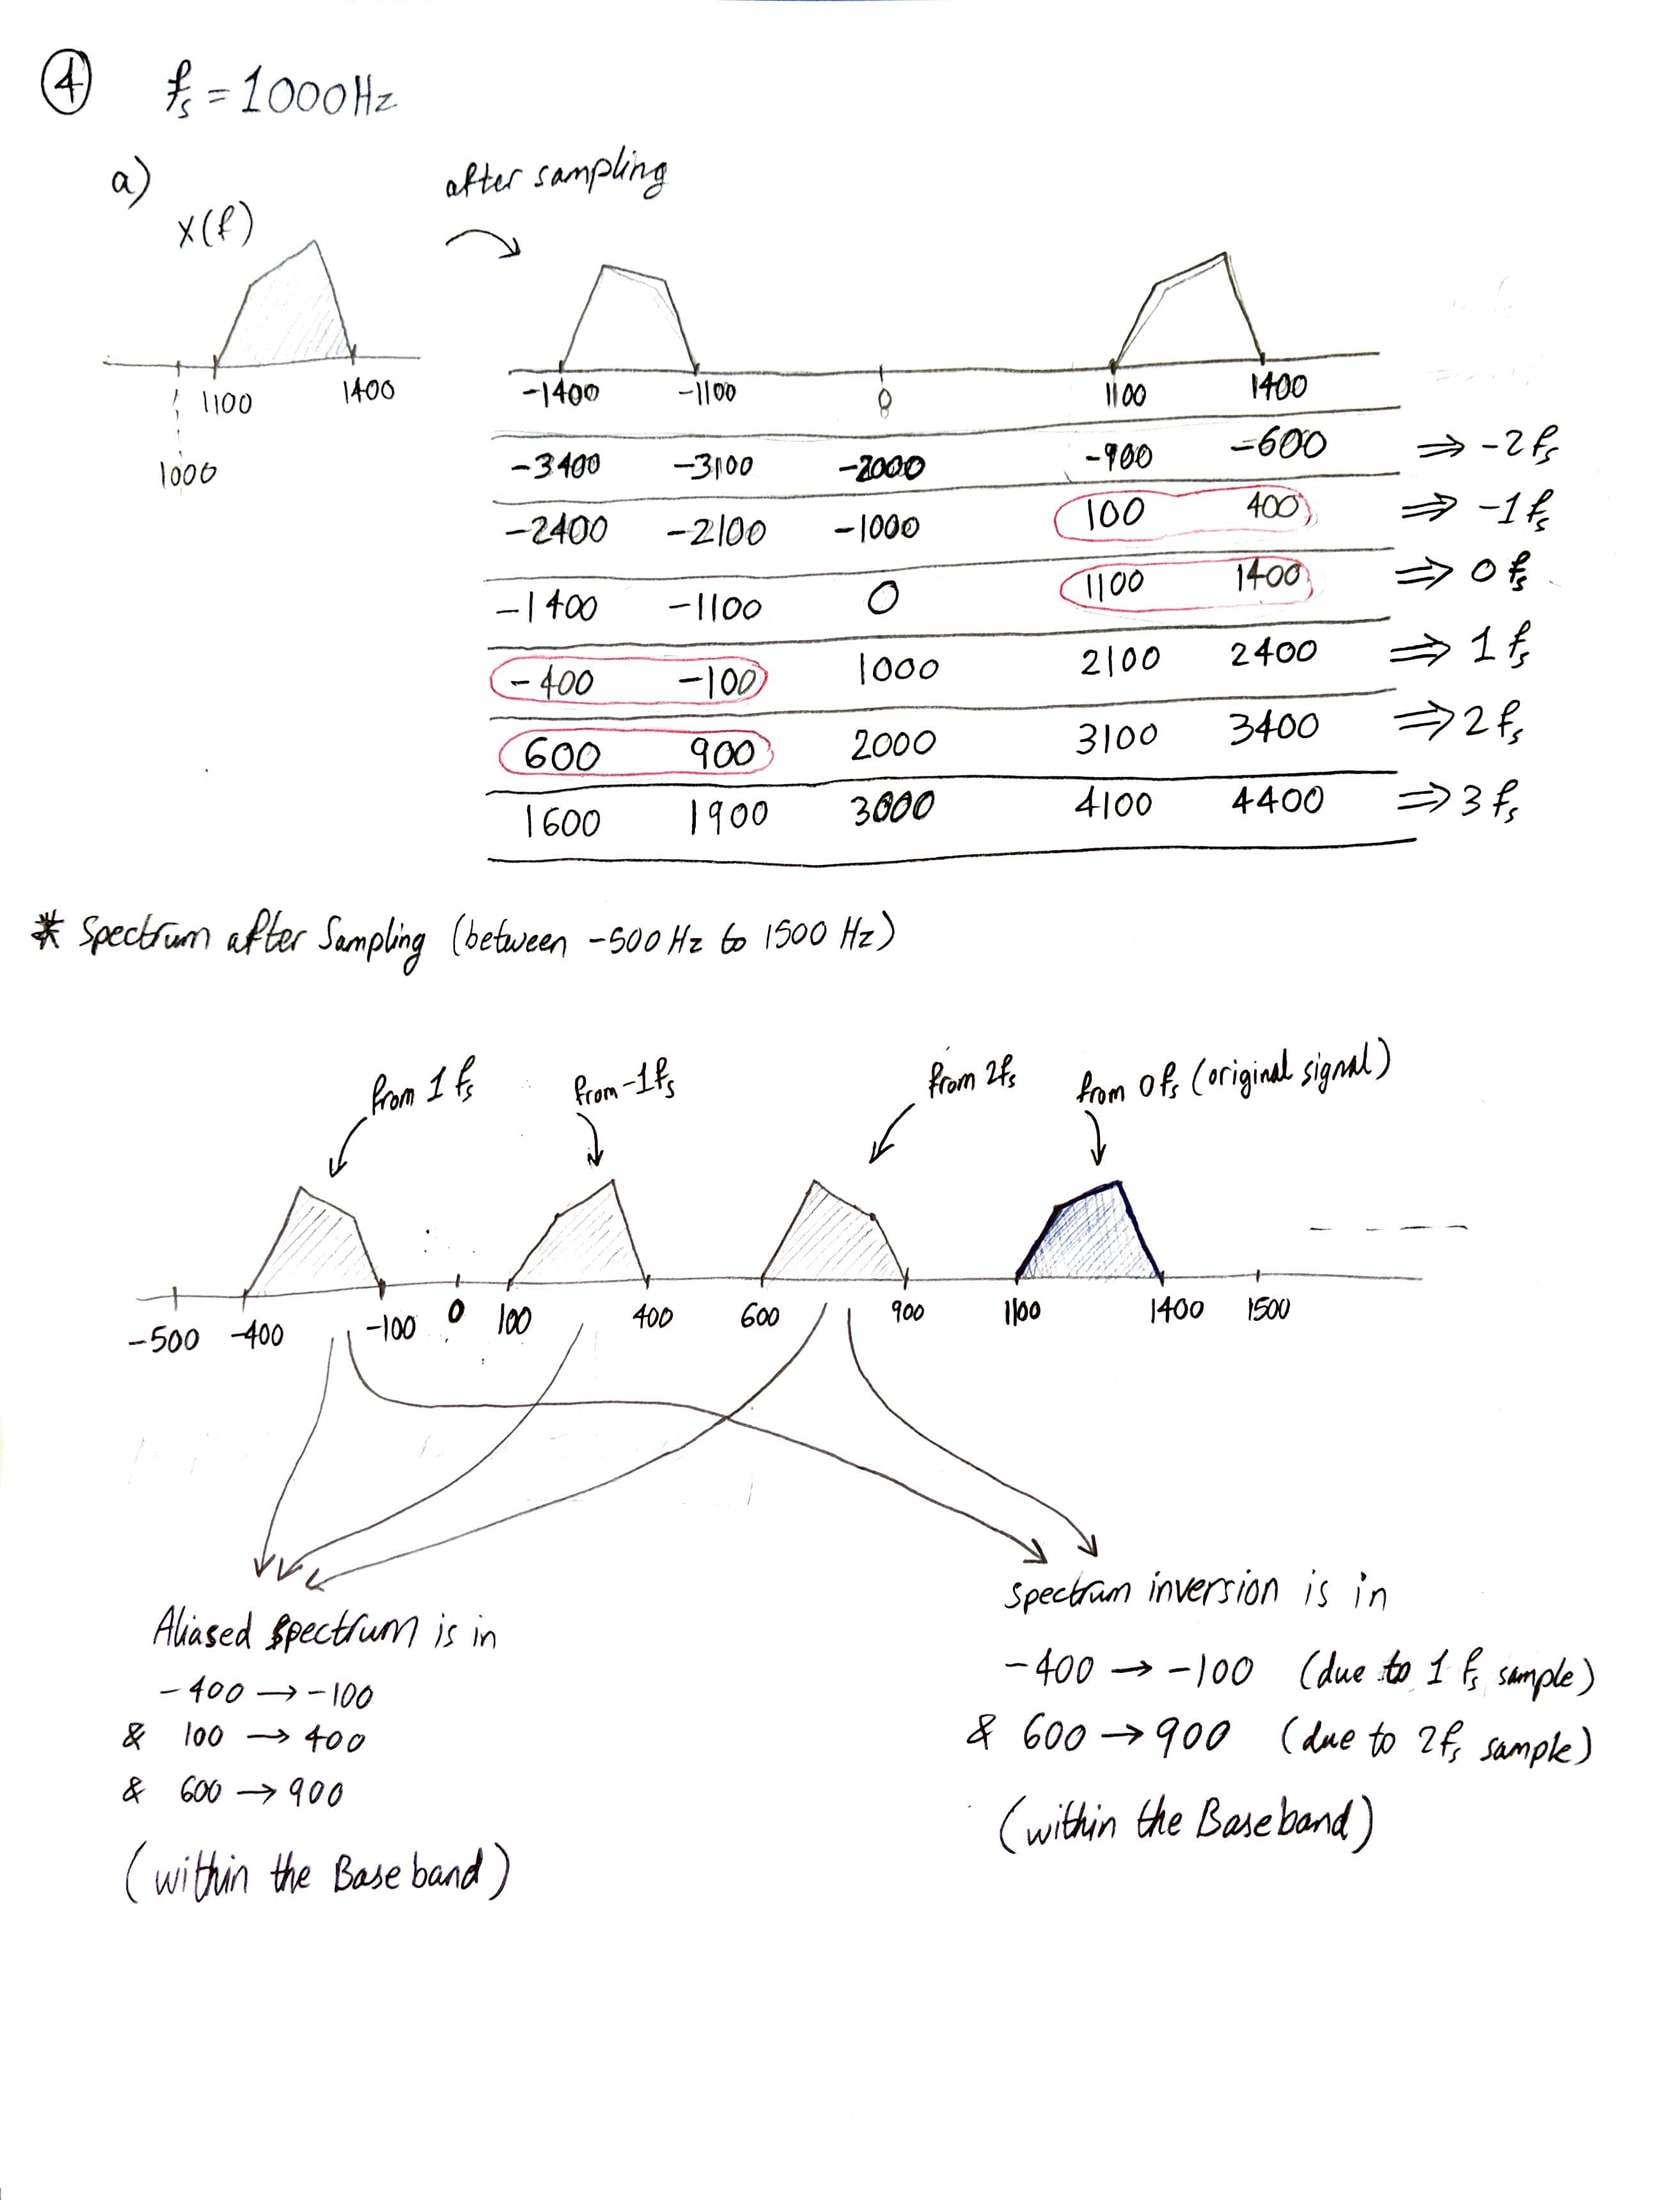 ④ fs = 1000Hz
a)
after sampling
X(f)
1100 1400
1000
-1400 -1100 0 1100 1400
-3400 -3100 -2000 -900 -600 ⇒ -2fs
-2400 -2100 -1000 100 400 ⇒ -1fs
-1400 -1100 0 1100 1400 ⇒ 0fs
-400 -100 1000 2100 2400 ⇒ 1fs
600 900 2000 3100 3400 ⇒ 2fs
1600 1900 3000 4100 4400 ⇒ 3fs
* Spectrum after Sampling (between -500Hz to 1500 Hz)
from 1fs from -1fs from 2fs from 0fs (original signal)
-500 -400 -100 0 100 400 600 900 1100 1400 1500
Aliased spectrum is in
-400 → -100
& 100 → 400
& 600 → 900
(within the Baseband)
spectrum inversion is in
-400 → -100 (due to 1fs sample)
& 600 → 900 (due to 2fs sample)
(within the Baseband)